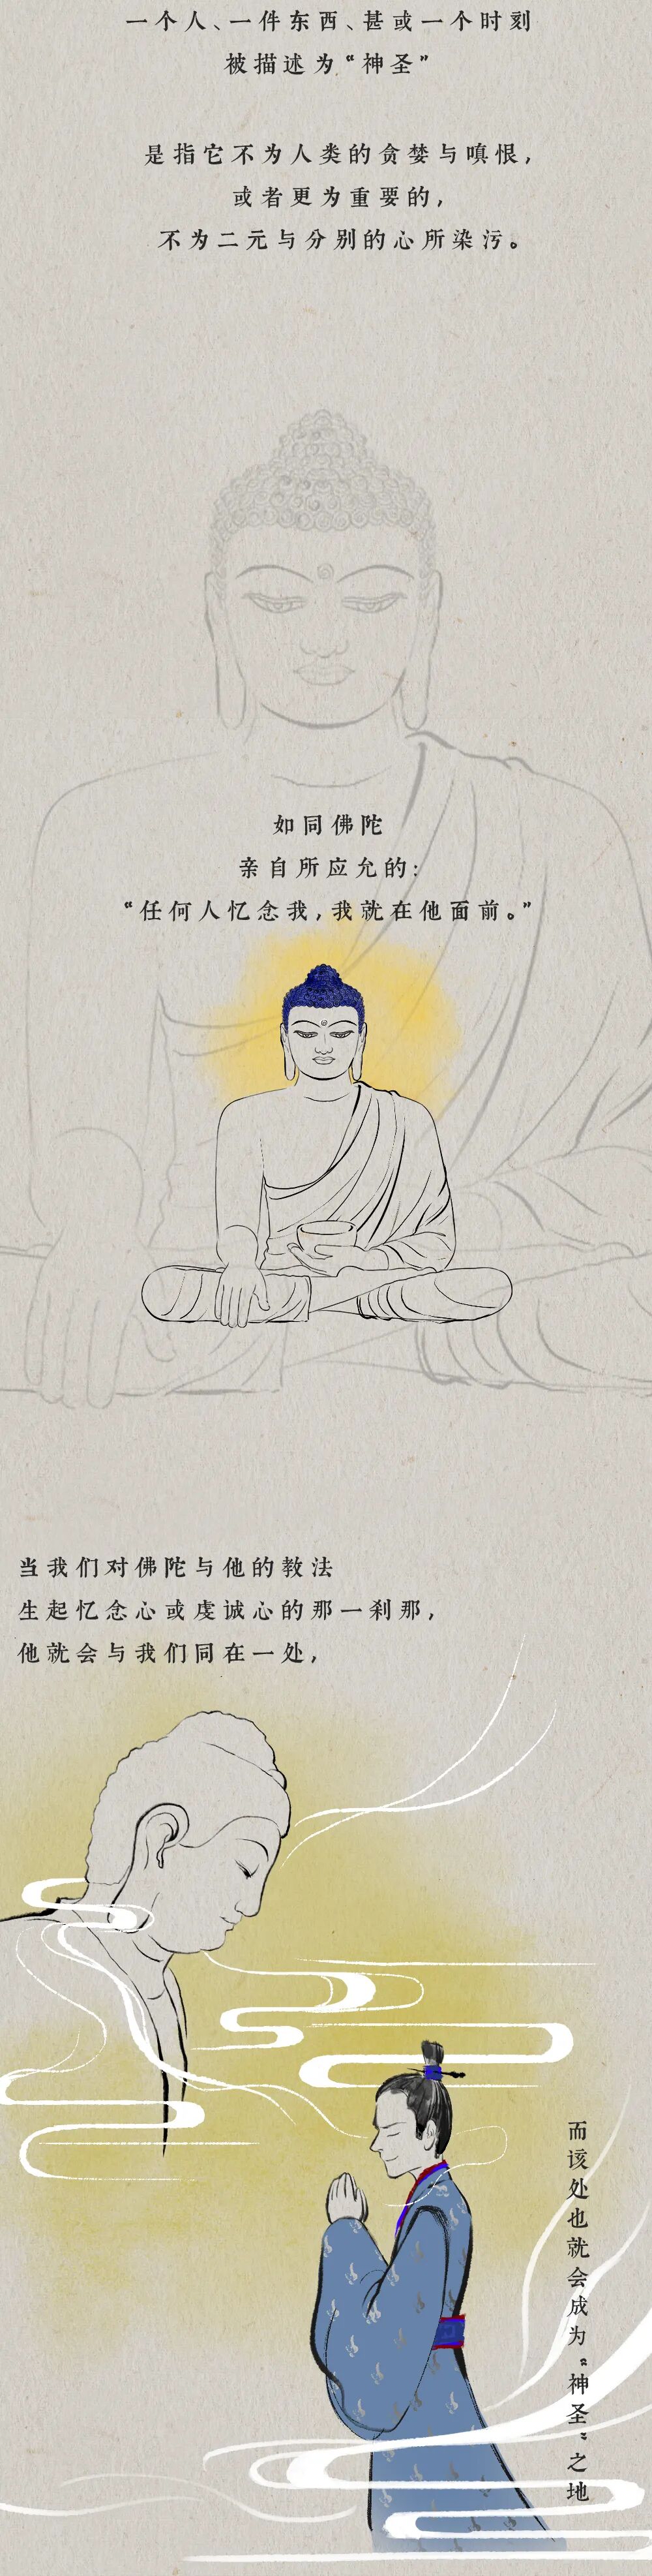 一个人、一件东西、甚或一个时刻
被描述为“神圣”
是指它不为人类的贪婪与嗔恨，
或者更为重要的，
不为二元与分别的心所染污。
如同佛陀
亲自所应允的：
“任何人忆念我，我就在他面前。”
当我们对佛陀与他的教法
生起忆念心或虔诚心的那一刹那，
他就会与我们同在一处，
而该处也就会成为“神圣”之地